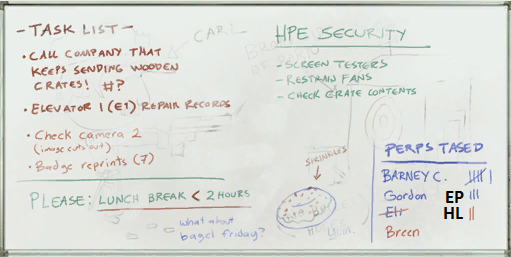 - TASK LIST -
• CALL COMPANY THAT
KEEPS SENDING WOODEN
CRATES! #?
• ELEVATOR 1 (E1) REPAIR RECORDS
• Check camera 2
(image cuts out)
• Badge reprints (7)
PLEASE: LUNCH BREAK < 2 HOURS
what about
bagel friday?
CARL
HPE SECURITY
- SCREEN TESTERS
- RESTRAIN FANS
- CHECK CRATE CONTENTS
SPRINKLES
PERPS TASED
BARNEY C.
Gordon EP III
Eli HL II
Breen